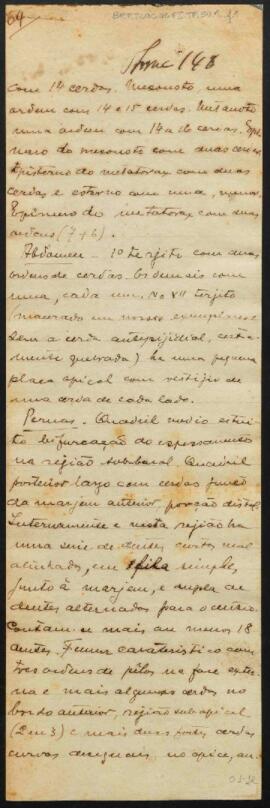 64
com 14 cerdas. Mesonoto, uma
ordem com 14 e 15 cerdas. Metanoto
uma ordem com 14 de cerdas. Epi-
mero do mesonoto com duas cerdas
Episterno do metatorax com duas
cerdas e esterno com uma,
Epimero do metatorax com duas
ordens (7+6).
Abdomen — 1º terjito com duas
ordens de cerdas. Os demais com
uma, cada um. No VII terjito
(macerado em nosso exemplar e
sem a cerda antepijidial,
quebrada) ha uma pequena
placa apical com vestijio de
uma cerda de cada lado.
Pernas. Quadril medio
bifurcação do espessamento
na rejião subbasal. Quadril
posterior largo com cerdas
da marjem anterior, porção distal.
Internamente e nesta rejião ha
uma serie de dentes curtos mal
alinhados, em fila simples,
junto á marjem, e dupla de
dentes alternados para o centro.
Contam-se mais ou menos 18
dentes. Femur carateristico com
tres ordens de pelos na face exter-
na e mais algumas cerdas no
bordo anterior, rejião subapical
(2 em 3) e mais duas fortes cerdas
curvas desiguais, no apice, an-